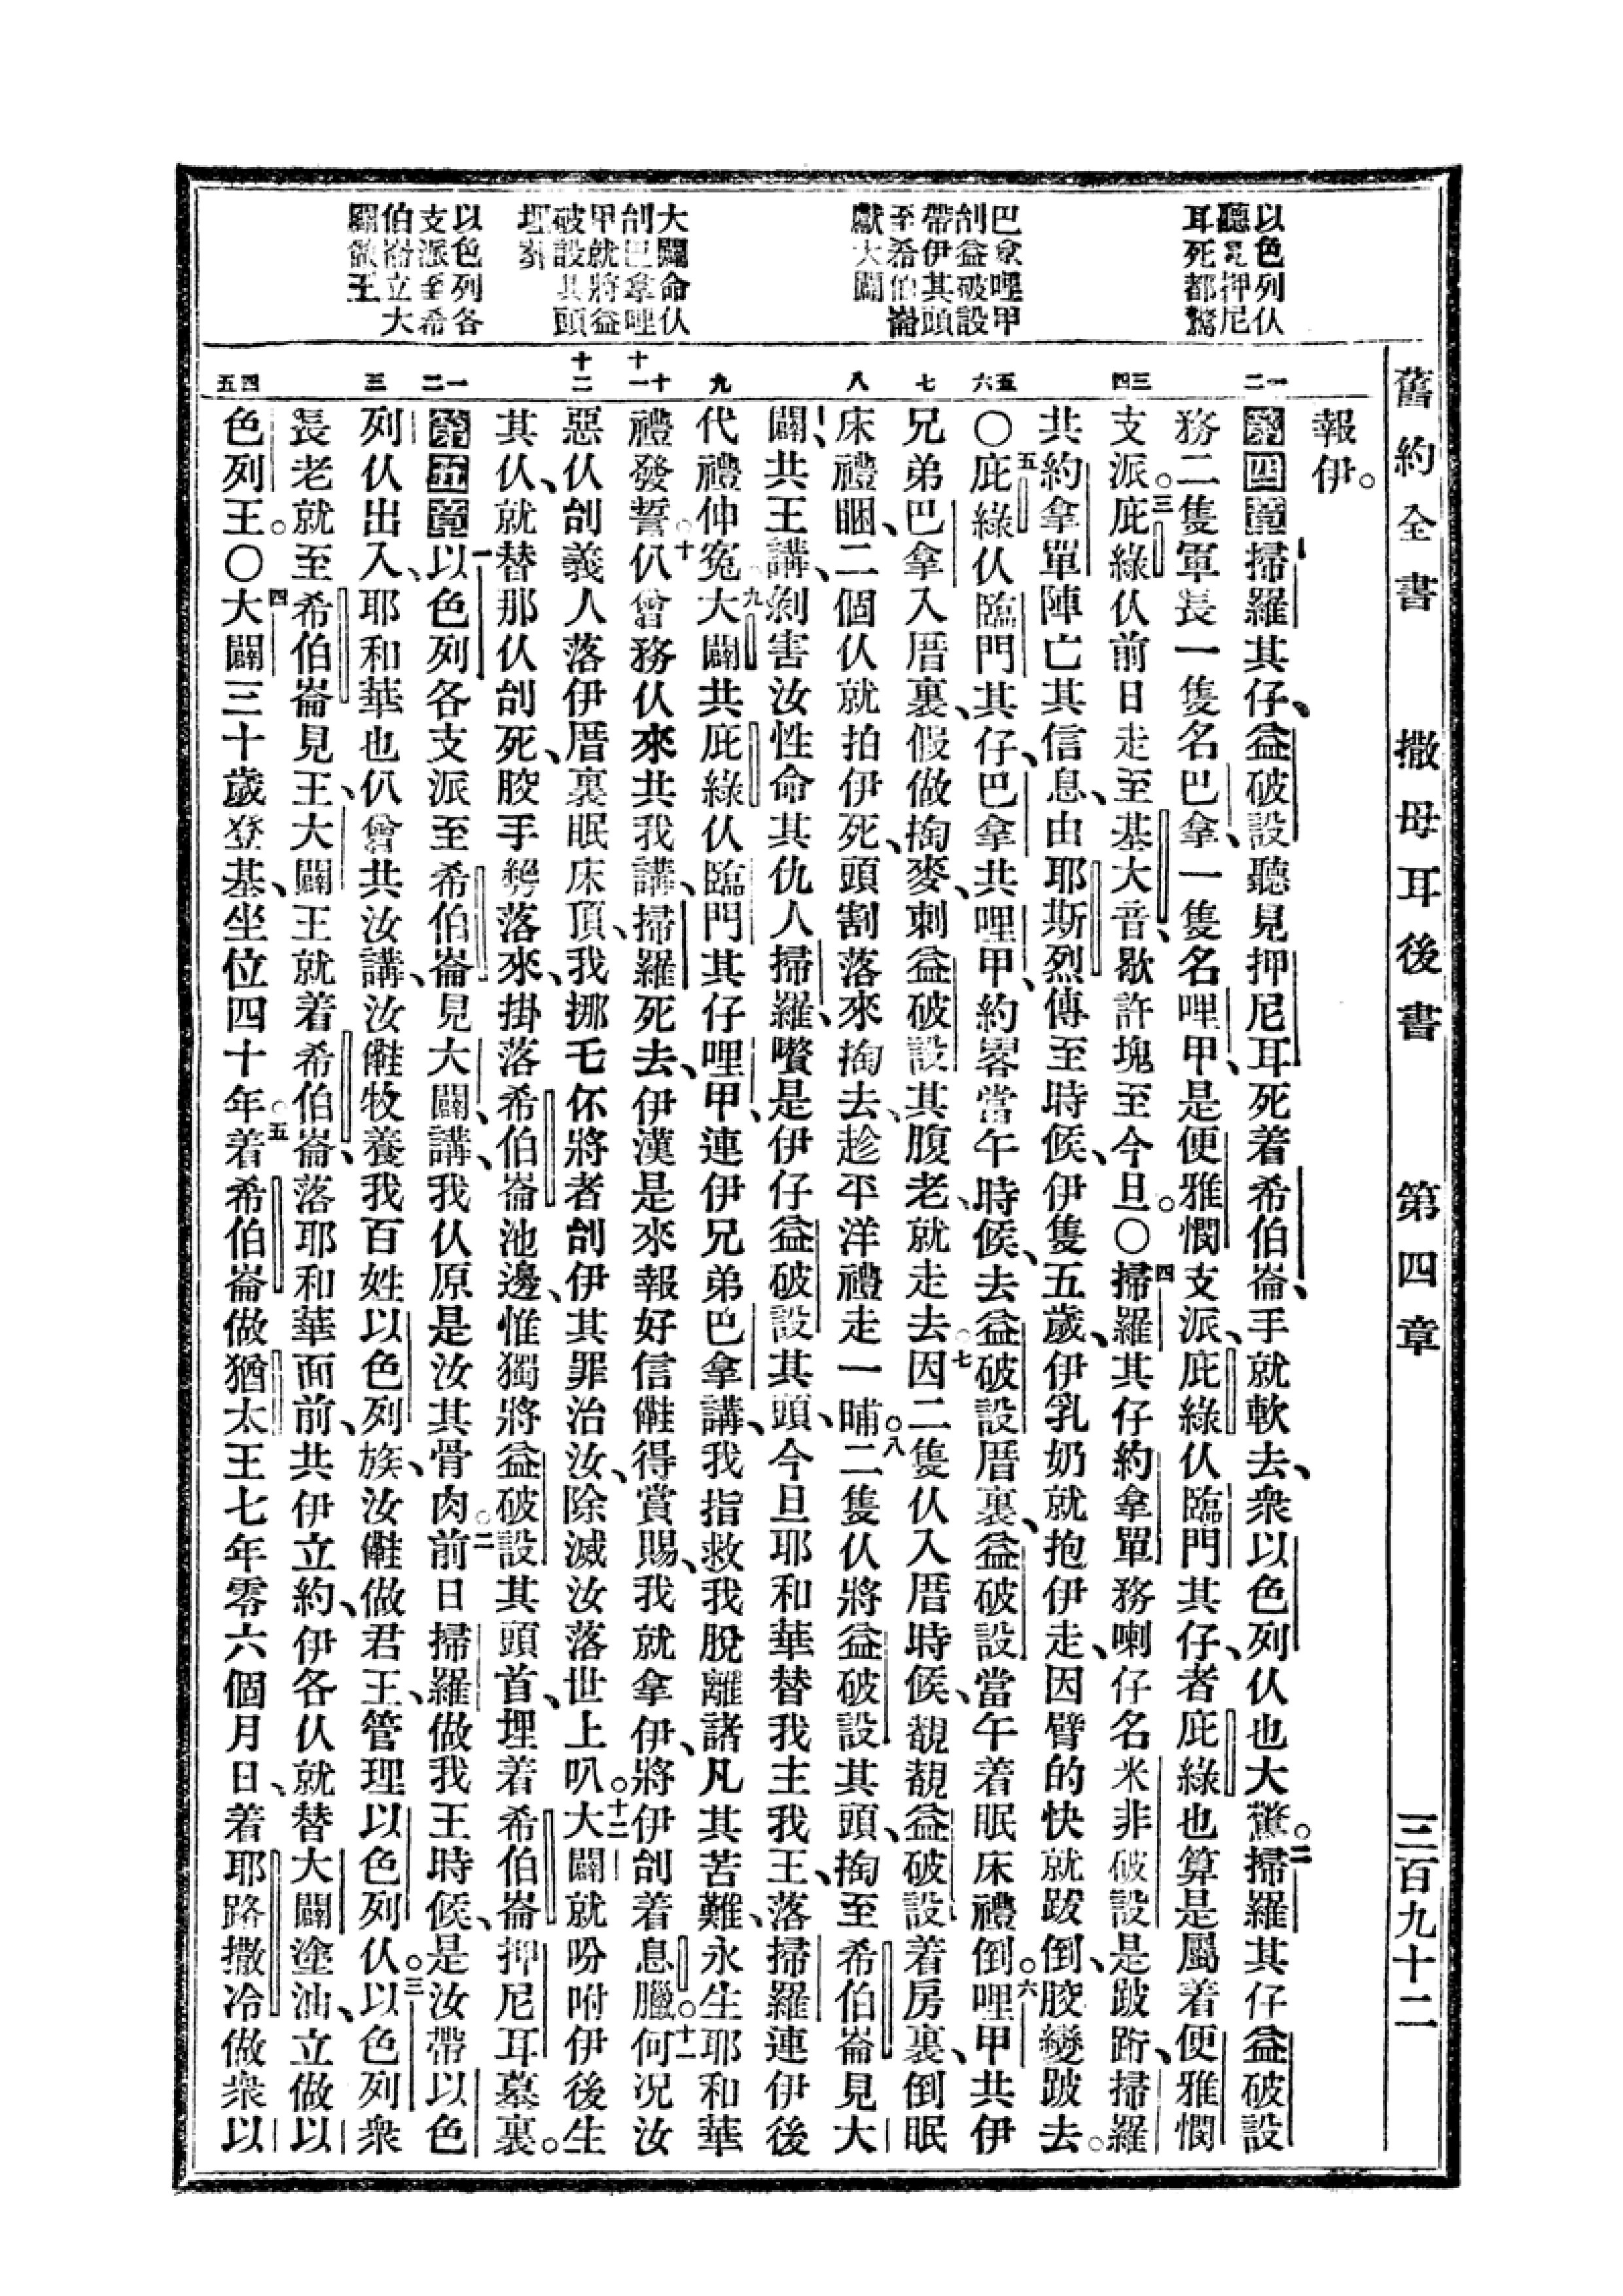 舊約全書 撒母耳後書 第四章 三百九十二
以色列仈
聽見押尼
耳死都驚
巴拿哩甲
刣益破設
帶伊其頭
至希伯崙
獻大闢
大闢命仈
刣巴拿哩
甲就將益
破設其頭
埋葬
以色列各
支派至希
伯崙立大
闢做王
報伊。
第四章掃羅其仔、益破設聽見押尼耳死着希伯崙、手就軟去、衆以色列仈也大驚。二掃羅其仔益破設
務二隻軍長一隻名巴拿、一隻名哩甲、是便雅憫支派、庇綠仈臨門其仔、者庇綠也算是屬着便雅憫
支派。三庇綠仈前日走至基大音、歇許塊至今旦。〇四掃羅其仔約拿單務喇仔名米非破設是跛𨂿、掃羅
共約拿單陣亡其信息、由耶斯烈傳至時候、伊隻五歲、伊乳奶就抱伊走、因臂的快就跋倒、骹變跛去。
〇五庇綠仈臨門其仔、巴拿共哩甲、約畧當午時候、去益破設厝裏、益破設當午着眠床禮倒。六哩甲共伊
兄弟巴拿入厝裏、假做掏麥、刺益破設其腹老、就走去。七因二隻仈入厝時候、覩覩益破設着房裏、倒眠
床禮睏、二個仈就拍伊死、頭割落來掏去、趁平洋禮走一晡。八二隻仈將益破設其頭、掏至希伯崙見大
闢、共王講、剿害汝性命其仇人掃羅、囋是伊仔益破設其頭、今旦耶和華替我主我王、落掃羅連伊後
代禮伸冤。九大闢共庇綠仈臨門其仔哩甲、連伊兄弟巴拿講、我指救我脫離諸凡其苦難、永生耶和華
禮發誓。十仈曾務仈來共我講、掃羅死去、伊漢是來報好信儺得賞賜、我就拿伊、將伊刣着息臘。十一何况汝
惡仈刣義人落伊厝裏眠床頂、我挪乇伓將者刣伊其罪治汝、除滅汝落世上叭。十二大闢就吩咐伊後生
其仈、就替那仈刣死、骹手𠞭落來、掛落希伯崙池邊、惟獨將益破設其頭首、埋着希伯崙押尼耳墓裏。
第五章一以色列各支派至希伯崙見大闢、講、我仈原是汝其骨肉。二前日掃羅做我王時候、是汝帶以色
列仈出入、耶和華也仈曾共汝講、汝儺牧養我百姓以色列族、汝儺做君王、管理以色列仈。三以色列衆
長老就至希伯崙見王、大闢王就着希伯崙、落耶和華面前、共伊立約、伊各仈就替大闢塗油、立做以
色列王。〇四大闢三十歲登基、坐位四十年。五着希伯崙做猶太王七年零六個月日、着耶路撒冷做衆以